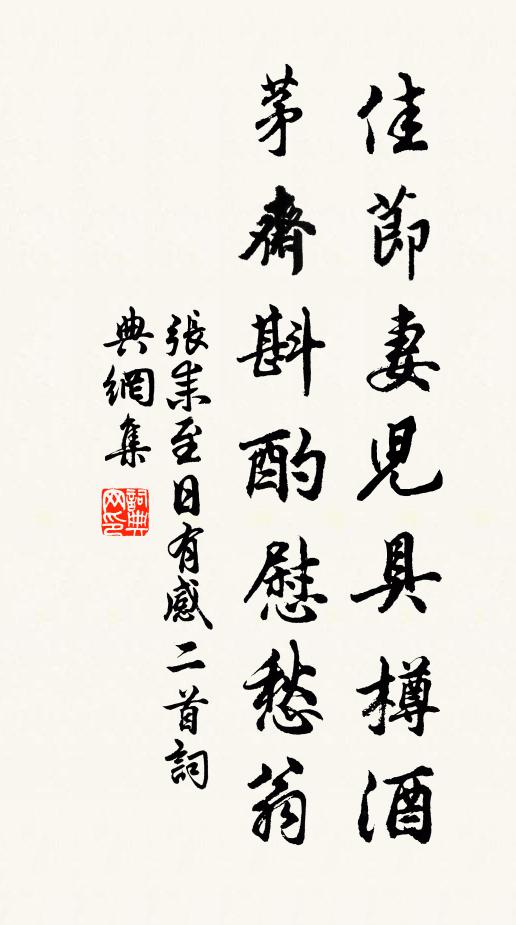 佳節妻児具樽酒
茅齋斟酌慰愁翁
張耒至日有感二首詞
典網集
詞典网印